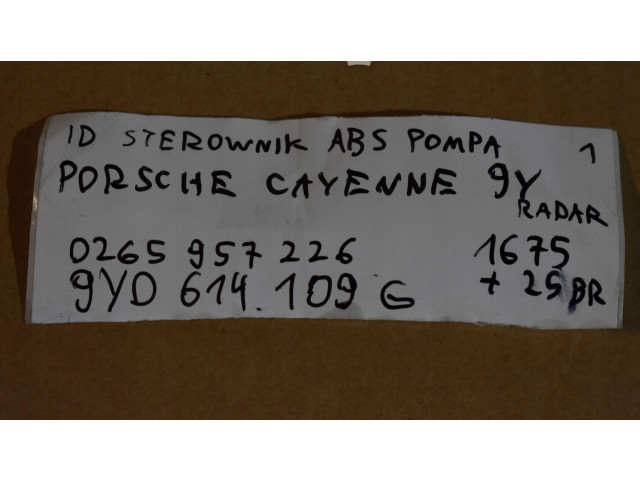 ID STEROWNIK ABS POMPA 1
PORSCHE CAYENNE 9Y
RADAR
0265 957 226 1675
9YD 614.109 G + 25 BR